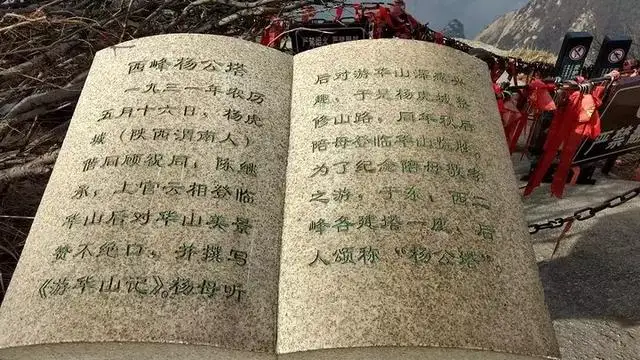 西峰杨公塔
一九三一年农历
五月十六日，杨虎
城（陕西渭南人）
偕同顾祝同，陈继
承，上官云相登临
华山后对华山美景
赞不绝口，并撰写
《游华山记》。杨母听
后对游华山深感兴
趣，于是杨虎城整
修山路，同年秋后
陪母登临华山览胜。
为了纪念陪母
之游，于东、西二
峰各建塔一座，后
人颂称“杨公塔”
严禁